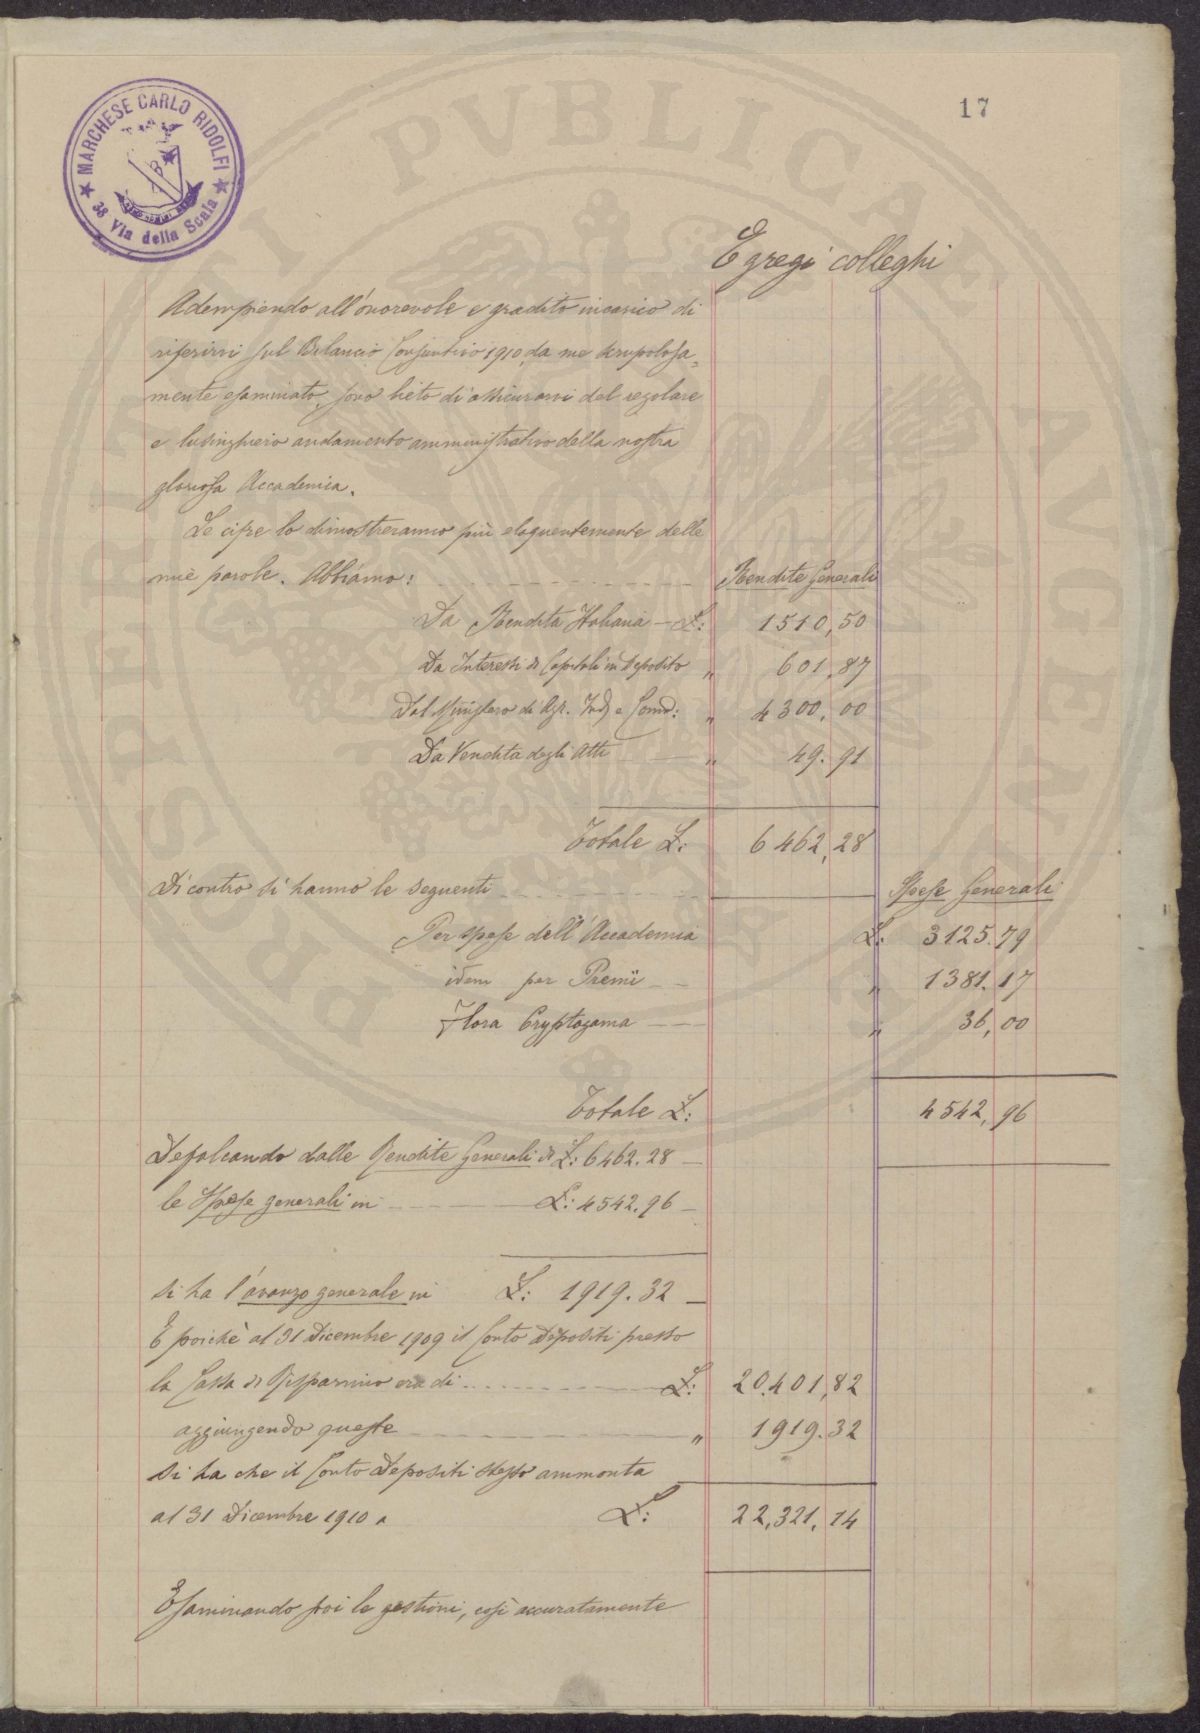 17
MARCHESE CARLO RIDOLFI
38 Via della Scala
PVBLICAE
PROSPERITATI
AVGENDAE
Egregi colleghi
Adempiendo all'onorevole e gradito incarico di
riferirvi sul Bilancio Consuntivo 1910, da me scrupolosa=
mente esaminato, sono lieto di assicurarvi del regolare
e lusinghiero andamento amministrativo della nostra
gloriosa Accademia.
Le cifre lo dimostreranno più eloquentemente delle
mie parole. Abbiamo: Rendite Generali
Da Rendita Italiana — L: 1510,50
Da Interessi di Capitali in deposito " 601,87
Dal Ministero di Agr. Ind. e Comm: " 4300,00
Da Vendita degli Atti — " 49.91
Totale L: 6462,28
Di contro si hanno le seguenti Spese Generali
Per spese dell'Accademia L: 3125.79
idem per Premi " 1381.17
Flora Cryptogama — " 36,00
Totale L: 4542,96
Defalcando dalle Rendite Generali di L: 6462.28 —
le Spese generali in — L: 4542.96 —
si ha l'avanzo generale in L: 1919.32 —
E poichè al 31 Dicembre 1909 il Conto Depositi presso
la Cassa di Risparmio era di L: 20.401,82
aggiungendo queste " 1919.32
si ha che il Conto Depositi stesso ammonta
al 31 Dicembre 1910 a L: 22,321,14
Esaminando poi le gestioni, così accuratamente